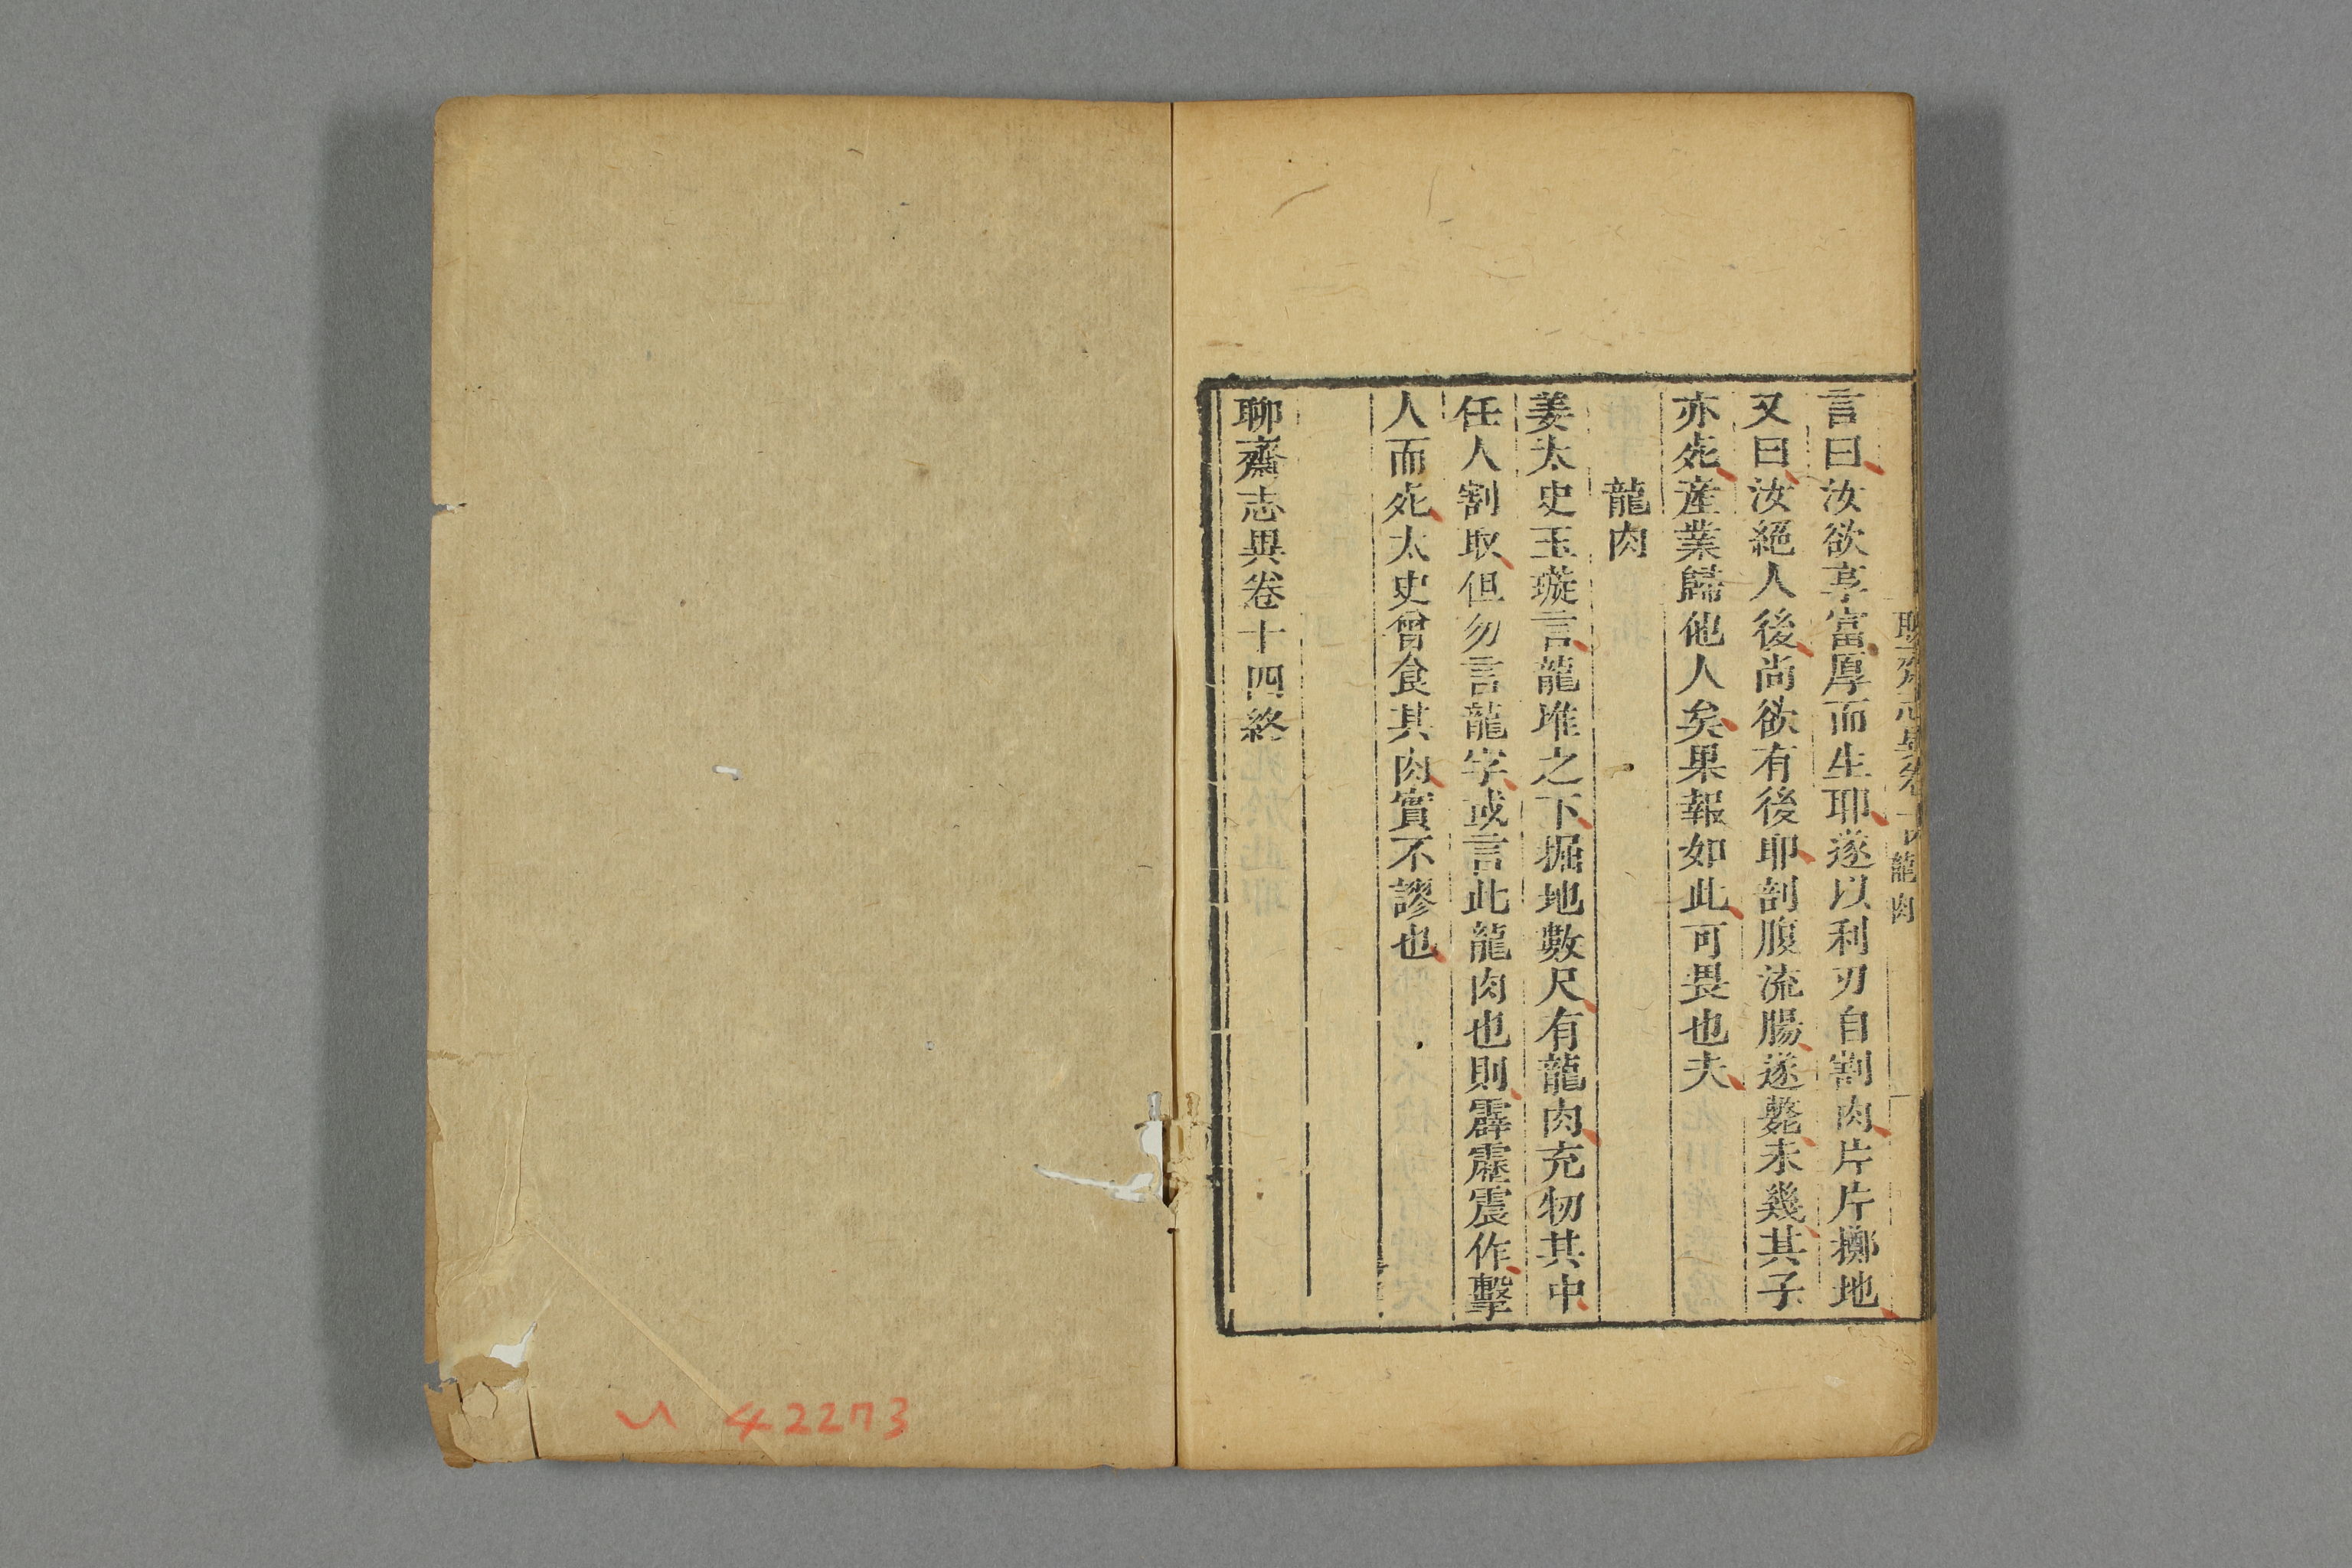 聊齋志異卷十四 龍肉
言曰汝欲享富厚而生耶遂以利刃自割肉片片擲地
又曰汝絕人後尚欲有後耶剖腹流腸遂斃未幾其子
亦死産業歸他人矣果報如此可畏也夫
龍肉
姜太史玉璇言龍堆之下掘地數尺有龍肉充牣其中
任人割取但勿言龍字或言此龍肉也則霹靂震作擊
人而死太史曾食其肉實不謬也
聊齋志異卷十四終
42273